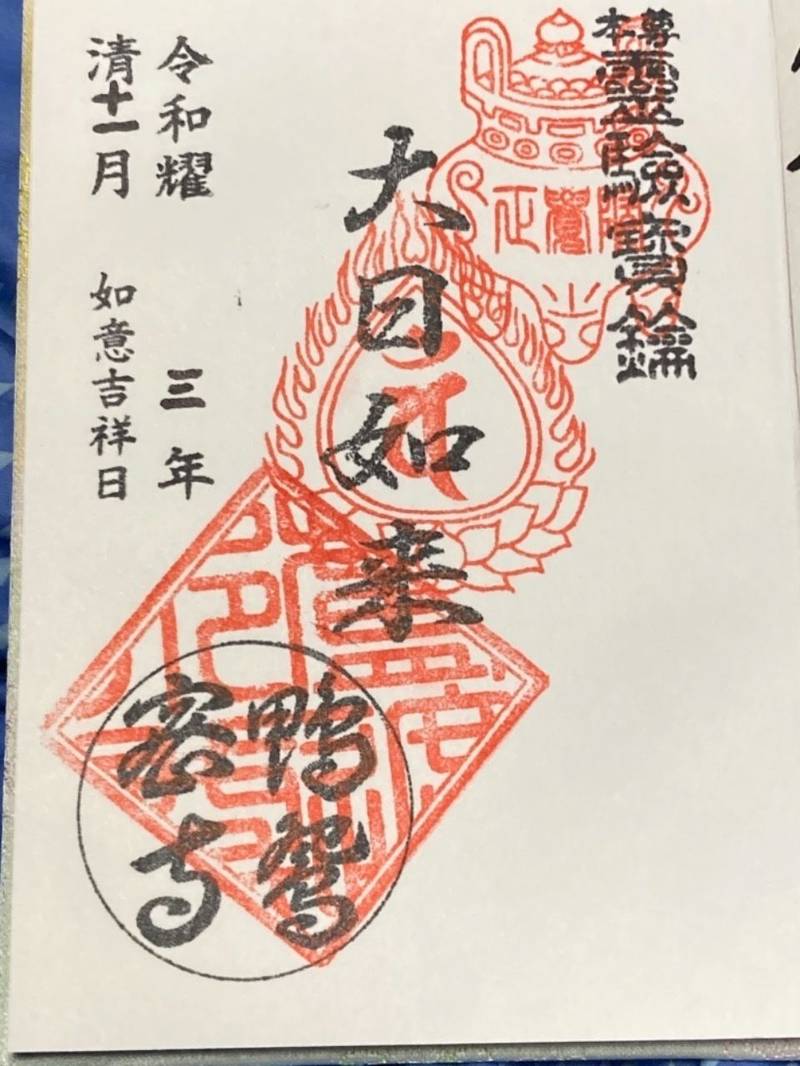 本尊
靈驗寶鑰
正覺
大日如来
令和耀 三年
清十一月 如意吉祥日
鴨
密寺